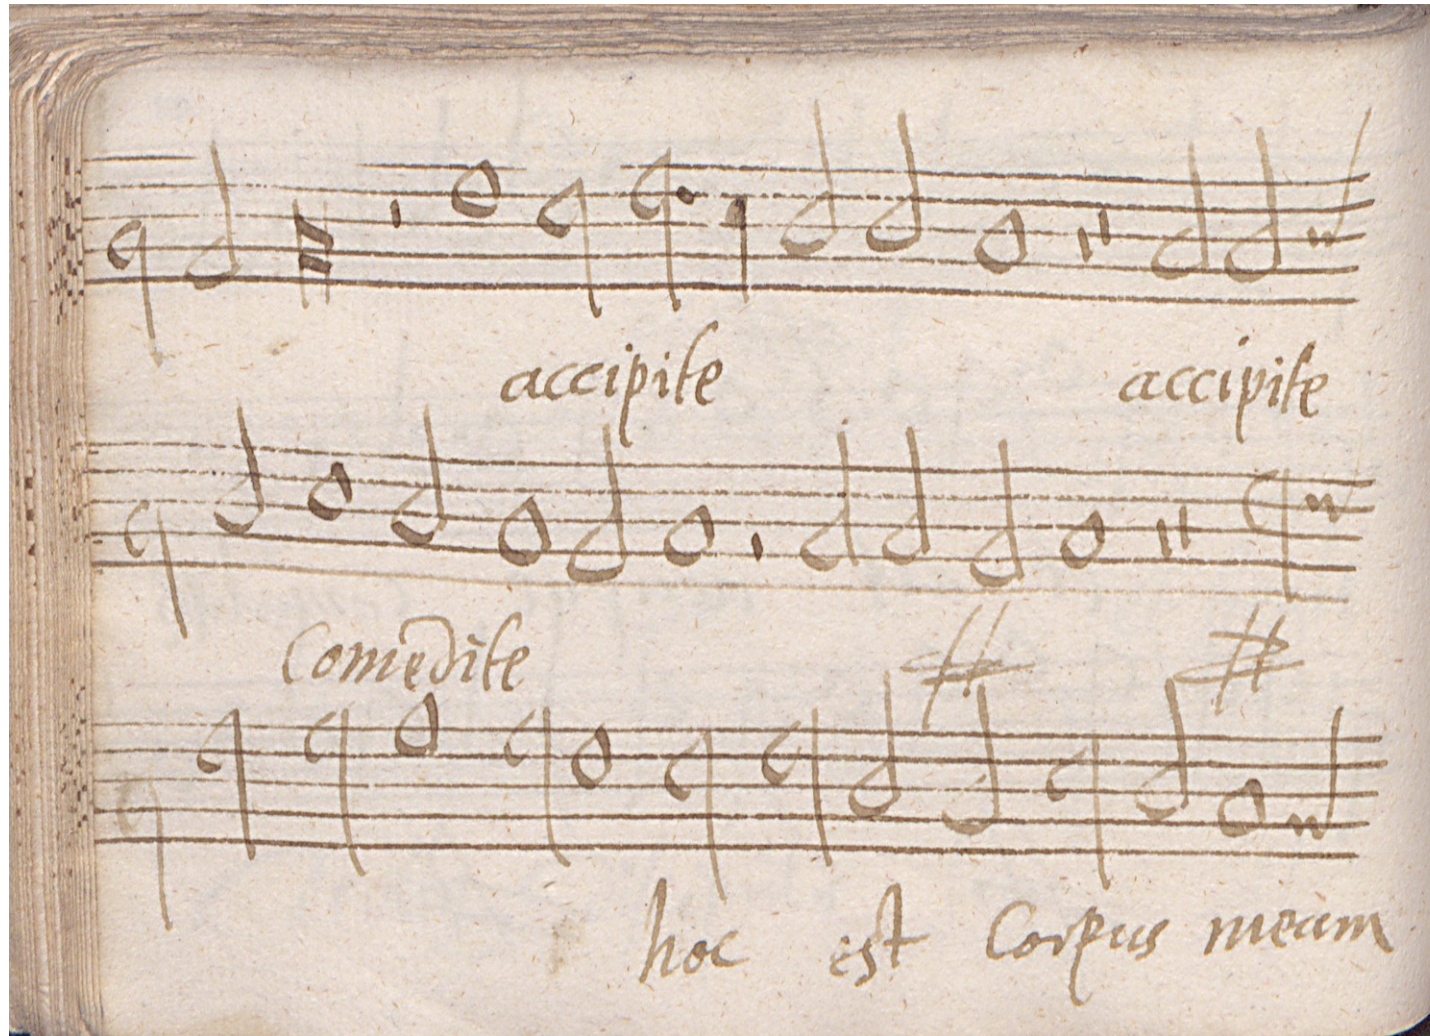 accipite accipite
Comedite
hoc est Corpus meum